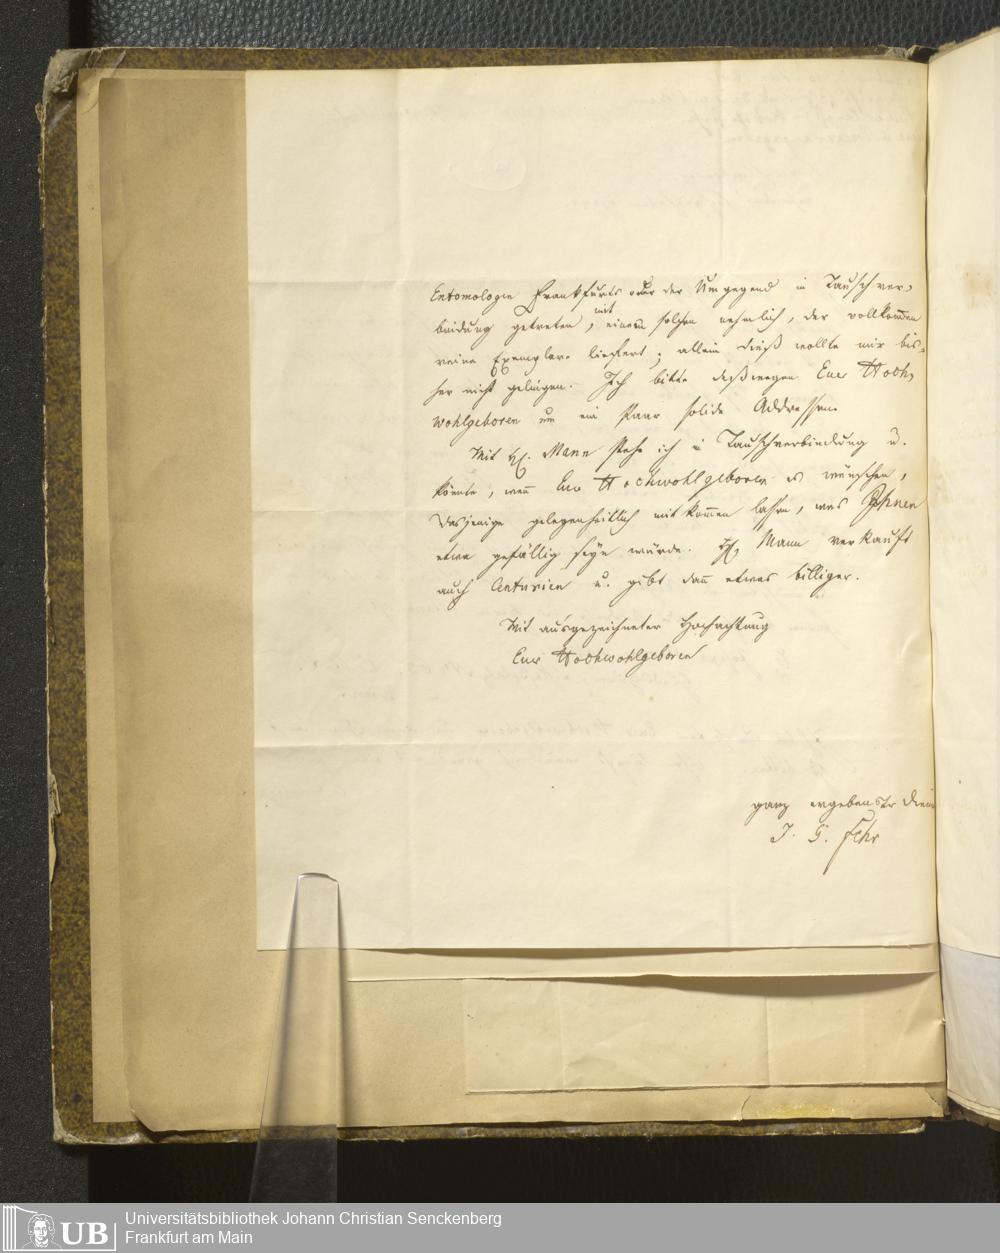 Entomologen Frankfurts oder der Umgegend in Tauschver-
bindung getreten, mit einem solchen nehmlich, der vollkom̄en
reine Exemplare liefert; allein dieß wollte mir bis-
her nicht gelingen. Ich bitte deßwegen Euer Hoch-
wohlgeboren um ein Paar solide Addressen.
Mit H. Mann stehe ich in Tauschverbindung u.
könnte, wen̄ Euer Hochwohlgeboren es wünschen,
dasjenige gelegenheitlich mitkom̄en lassen, was Ihnen
etwa gefällig seyn würde. H. Mann verkauft
auch Centurien u. gibt dan̄ etwas billiger.
Mit ausgezeichneter Hochachtung
Euer Hochwohlgeboren
ganz ergebenster
J. G. Fehr
UB
Universitätsbibliothek Johann Christian Senckenberg
Frankfurt am Main